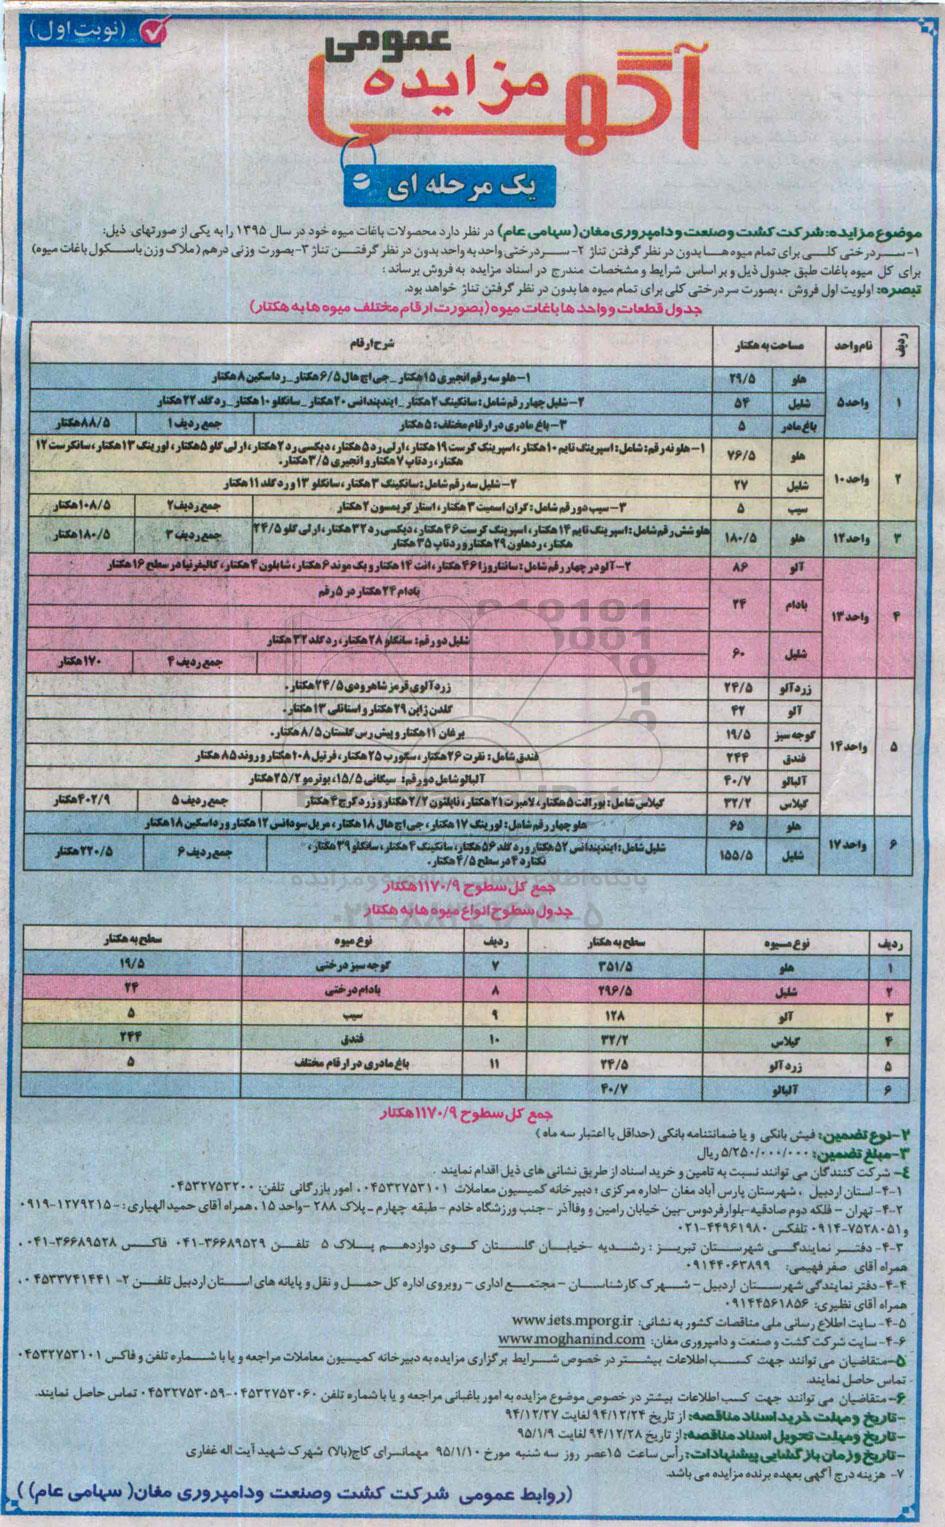 (نوبت اول)
آگهی مزایده عمومی
یک مرحله ای
موضوع مزایده: شرکت کشت وصنعت ودامپروری مغان(سهامی عام) در نظر دارد محصولات باغات میوه خود در سال ۱۳۹۵ را به یکی از صورتهای ذیل:
۱-سردرختی کلی برای تمام میوه ها بدون در نظر گرفتن تناژ ۲-سردرختی واحد به واحد بدون در نظر گرفتن تناژ ۳-بصورت وزنی درهم (ملاک وزن باسکول باغات میوه)
برای کل میوه باغات طبق جدول ذیل و بر اساس شرایط و مشخصات مندرج در اسناد مزایده به فروش برساند:
تبصره: اولویت اول فروش ، بصورت سردرختی کلی برای تمام میوه ها بدون در نظر گرفتن تناژ خواهد بود.
جدول قطعات وواحدها باغات میوه (بصورت ارقام مختلف میوه ها به هکتار)
ردیف نام واحد مساحت به هکتار شرح ارقام
۱ واحد۵ هلو ۲۹/۵ ۱-هلو سه رقم انجیری ۱۵هکتار _جی اچ هال ۶/۵هکتار _رداسکین ۸هکتار
شلیل ۵۴ ۲-شلیل چهار رقم شامل: سانکینگ ۲هکتار_ایندیپندانس ۲۰هکتار_سانگلو ۱۰هکتار_ردگلد ۲۲هکتار
باغ مادر ۵ ۳-باغ مادری در ارقام مختلف: ۵هکتار جمع ردیف ۱ ۸۸/۵هکتار
۲ واحد۱۰ هلو ۷۶/۵ ۱-هلو نه رقم: شامل: اسپرینگ تایم ۱۰هکتار، اسپرینگ کرست ۱۹هکتار، ارلی رد ۵هکتار، دیکسی رد ۲هکتار، ارلی گلو ۵هکتار، لورینگ ۱۳هکتار، سانکرست ۱۲
هکتار، ردتاپ ۷هکتار و انجیری ۳/۵هکتار.
شلیل ۲۷ ۲-شلیل سه رقم شامل: سانکینگ ۳هکتار، سانگلو ۱۳ و ردگلد ۱۱هکتار
سیب ۵ ۳-سیب دو رقم شامل: گران اسمیت ۳هکتار، استار کریمسون ۲هکتار جمع ردیف۲ ۱۰۸/۵هکتار
۳ واحد۱۲ هلو ۱۸۰/۵ هلو شش رقم شامل: اسپرینگ تایم ۱۴هکتار، اسپرینگ کرست ۴۶هکتار، دیکسی رد ۳۲هکتار، ارلی گلو ۲۴/۵
هکتار، ردهاون ۲۹هکتار و ردتاپ ۳۵هکتار جمع ردیف ۳ ۱۸۰/۵هکتار
۴ واحد۱۳ آلو ۸۶ ۲-آلو در چهار رقم شامل: سانتاروزا ۴۶هکتار، انت ۱۴هکتار و بک موند ۶هکتار، شابلون ۴هکتار، کالیفرنیا در سطح ۱۶هکتار
بادام ۲۴ بادام ۲۴هکتار در ۵رقم
شلیل ۶۰ شلیل دو رقم: سانگلو ۲۸هکتار، ردگلد ۳۲هکتار
جمع ردیف ۴ ۱۷۰هکتار
۵ واحد۱۴ زردآلو ۲۴/۵ زردآلوی قرمز شاهرودی ۲۴/۵هکتار.
آلو ۴۲ گلدن ژاپن ۲۹هکتار و استانلی ۱۳هکتار.
گوجه سبز ۱۹/۵ برغان ۱۱هکتار و پیش رس گلستان ۸/۵هکتار.
فندق ۲۴۴ فندق شامل: نقرت ۲۶هکتار، سگورب ۲۵هکتار، فرتیل ۱۰۸هکتار و روند ۸۵هکتار
آلبالو ۴۰/۷ آلبالو شامل دو رقم: سیگانی ۱۵/۵، بوترمو ۲۵/۲هکتار
گیلاس ۳۲/۲ گیلاس شامل: بورالت ۵هکتار، لامبرت ۲۱هکتار، ناپلئون ۲/۲هکتار و زرد کرج ۴هکتار جمع ردیف ۵ ۴۰۲/۹هکتار
۶ واحد۱۷ هلو ۶۵ هلو چهار رقم شامل: لورینگ ۱۷هکتار، جی اچ هال ۱۸هکتار، مریل سودانس ۱۲هکتار و رداسکین ۱۸هکتار
شلیل ۱۵۵/۵ شلیل شامل: ایندیپندانس ۵۲هکتار و ردگلد ۵۶هکتار، سانکینگ ۴هکتار، سانگلو ۳۹هکتار،
نکتارد ۴ در سطح ۴/۵هکتار. جمع ردیف ۶ ۲۲۰/۵هکتار
جمع کل سطوح ۱۱۷۰/۹هکتار
جدول سطوح انواع میوه ها به هکتار
ردیف نوع میوه سطح به هکتار ردیف نوع میوه سطح به هکتار
۱ هلو ۳۵۱/۵ ۷ گوجه سبز درختی ۱۹/۵
۲ شلیل ۲۹۶/۵ ۸ بادام درختی ۲۴
۳ آلو ۱۲۸ ۹ سیب ۵
۴ گیلاس ۳۲/۲ ۱۰ فندق ۲۴۴
۵ زردآلو ۲۴/۵ ۱۱ باغ مادری در ارقام مختلف ۵
۶ آلبالو ۴۰/۷
جمع کل سطوح ۱۱۷۰/۹هکتار
۲-نوع تضمین: فیش بانکی و یا ضمانتنامه بانکی (حداقل با اعتبار سه ماه)
۳-مبلغ تضمین: ۵/۲۵۰/۰۰۰/۰۰۰ ریال
۴- شرکت کنندگان می توانند نسبت به تامین و خرید اسناد از طریق نشانی های ذیل اقدام نمایند .
۴-۱- استان اردبیل ، شهرستان پارس آباد مغان -اداره مرکزی ؛ دبیرخانه کمیسیون معاملات ۰۴۵۳۲۷۵۳۱۰۱، امور بازرگانی تلفن: ۰۴۵۳۲۷۵۳۲۰۰
۴-۲- تهران - فلکه دوم صادقیه-بلوارفردوس-بین خیابان رامین و وفاآذر - جنب ورزشگاه خادم - طبقه چهارم - پلاک ۲۸۸ -واحد ۱۵ ، همراه آقای حمید الهیاری: ۱۲۷۹۲۱۵-۰۹۱۹
و۷۵۲۸۰۵۱-۰۹۱۴ تلفکس ۴۴۹۶۱۹۸۰-۰۲۱
۴-۳- دفتر نمایندگی شهرستان تبریز : رشدیه -خیابان گلستان کوی دوازدهم پلاک ۵ تلفن ۳۶۶۸۹۵۲۹-۰۴۱ فاکس ۳۶۶۸۹۵۲۸-۰۴۱ ،
همراه آقای صفر فهیمی: ۰۹۱۴۴۰۶۳۸۹۹
۴-۴- دفتر نمایندگی شهرستان اردبیل - شهرک کارشناسان - مجتمع اداری - روبروی اداره کل حمل و نقل و پایانه های استان اردبیل تلفن ۲- ۰۴۵۳۳۷۴۱۴۴۱ ،
همراه آقای نظیری: ۰۹۱۴۴۵۶۱۸۵۶
۴-۵- سایت اطلاع رسانی ملی مناقصات کشور به نشانی: www.iets.mporg.ir
۴-۶- سایت شرکت کشت و صنعت و دامپروری مغان: www.moghanind.com
۵-متقاضیان می توانند جهت کسب اطلاعات بیشتر در خصوص شرایط برگزاری مزایده به دبیرخانه کمیسیون معاملات مراجعه و یا با شماره تلفن و فاکس ۰۴۵۳۲۷۵۳۱۰۱
تماس حاصل نمایند.
۶- متقاضیان می توانند جهت کسب اطلاعات بیشتر در خصوص موضوع مزایده به امور باغبانی مراجعه و یا با شماره تلفن ۰۴۵۳۲۷۵۳۰۶۰-۰۴۵۳۲۷۵۳۰۵۹ تماس حاصل نمایند.
-تاریخ و مهلت خرید اسناد مناقصه: از تاریخ ۹۴/۱۲/۲۴ لغایت ۹۴/۱۲/۲۷
-تاریخ ومهلت تحویل اسناد مناقصه: از تاریخ ۹۴/۱۲/۲۸ لغایت ۹۵/۱/۹
-تاریخ وزمان بازگشایی پیشنهادات: رأس ساعت ۱۵عصر روز سه شنبه مورخ ۹۵/۱/۱۰ مهمانسرای کاج(بالا) شهرک شهید آیت اله غفاری
۷- هزینه درج آگهی بعهده برنده مزایده می باشد.
(روابط عمومی شرکت کشت وصنعت ودامپروری مغان( سهامی عام))